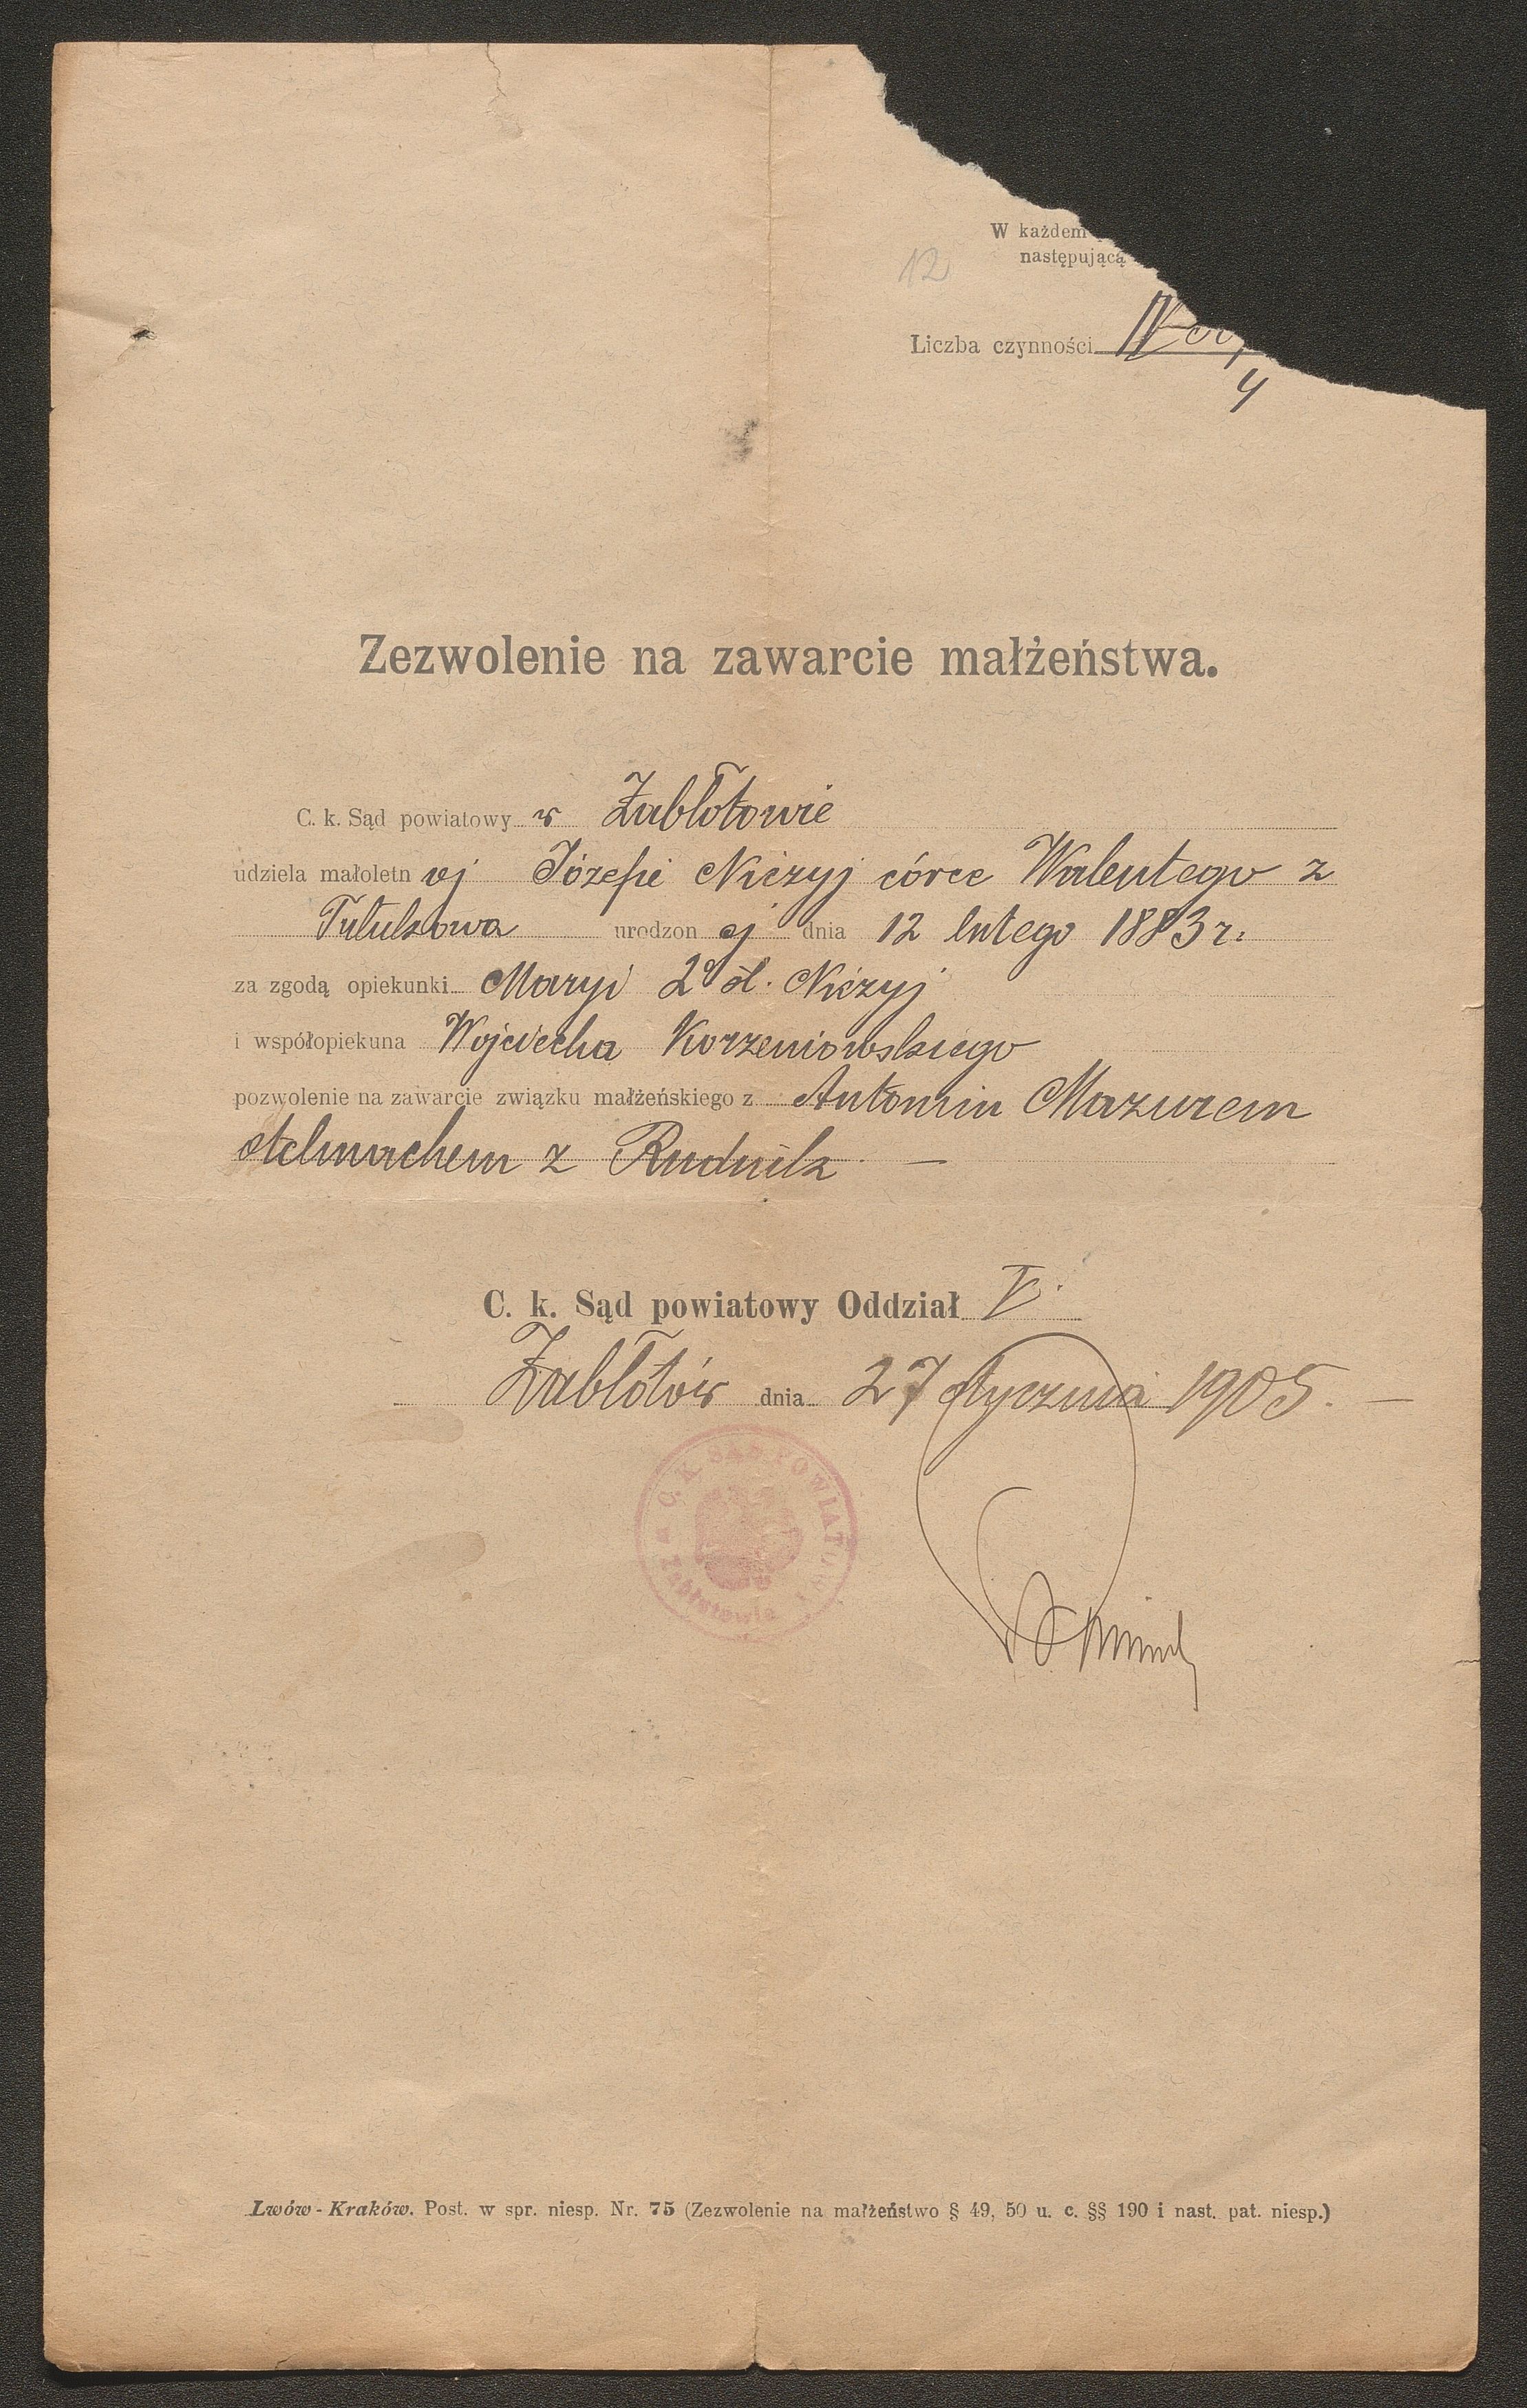 W każdem
następującą
12
Liczba czynności IV
4
Zezwolenie na zawarcie małżeństwa.
C. k. Sąd powiatowy w Zabłotowie
udziela małoletn ej Józefie Niezyj córce Walentego z
Tułukowa urodzon ej dnia 12 lutego 1883 r.
za zgodą opiekunki Maryi 2º śl. Niezyj
i współopiekuna Wojciecha Korzeniowskiego
pozwolenie na zawarcie związku małżeńskiego z Antonim Mazurem
stelmachem z Rudnik. —
C. k. Sąd powiatowy Oddział V.
Zabłotów dnia 27 stycznia 1905. —
C. K. SĄD POWIATOWY
Zabłotowie
Lwów - Kraków. Post. w spr. niesp. Nr. 75 (Zezwolenie na małżeństwo § 49, 50 u. c. §§ 190 i nast. pat. niesp.)